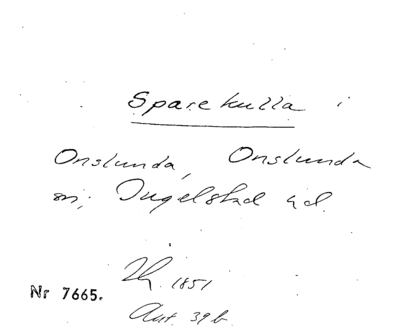 Sparekulla i
Onslunda, Onslunda
sn; Ingelstad hd.
1851
Nr 7665.
Ant. 39 b